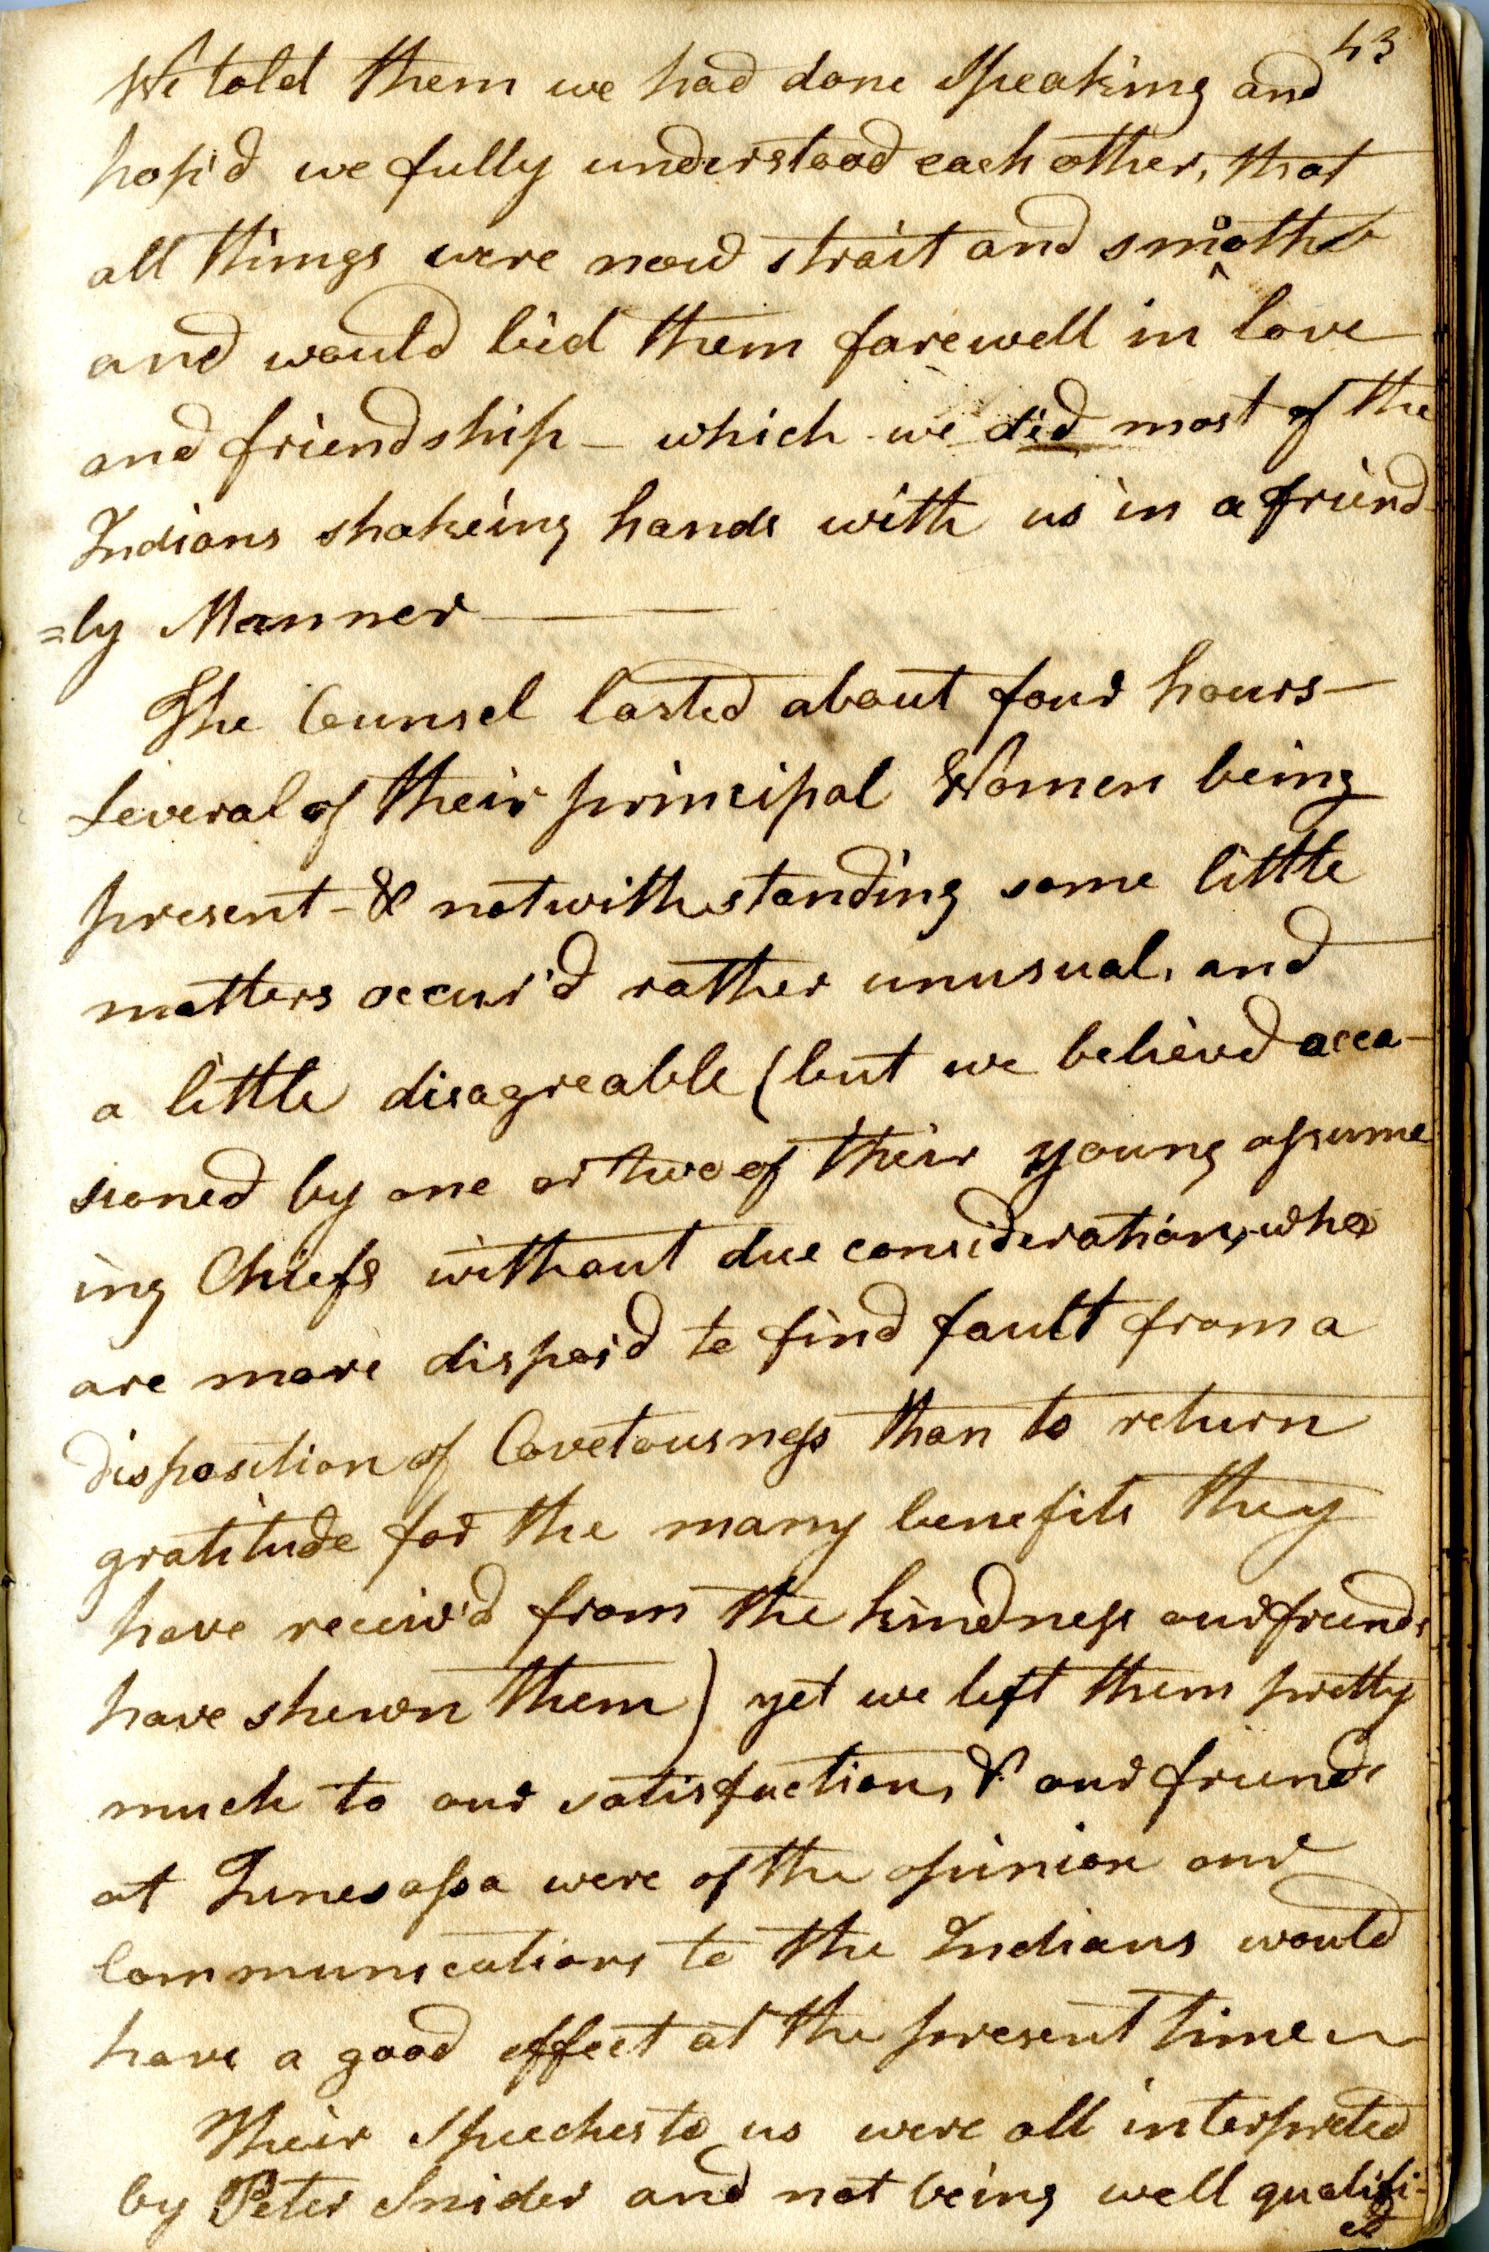 43
We told them we had done Speaking and
hop'd we fully understood each other, that
all things were now strait and smooth
and would bid them farewell in love
and friendship – which we did most of the
Indians shakeing hands with us in a friend
=ly Manner
The Counsel lasted about four hours –
Several of their principal Women being
present – & notwithstanding some little
matters occur'd rather unusual, and
a little disagreable (but we believd occa-
sioned by one or two of their young assume
ing Chiefs without due consideration, who
are more dispos'd to find fault from a
disposition of Covetousness than to return
gratitude for the many benefits they
have receiv'd from the kindness our friends
have shewn them) yet we left them pretty
much to our satisfaction, & our friends
at Tunesassa were of the opinion our
Communications to the Indians would
have a good effect at the present time
Their Speeches to us were all interpreted
by Peter Snider and not being well qualifi-
ed